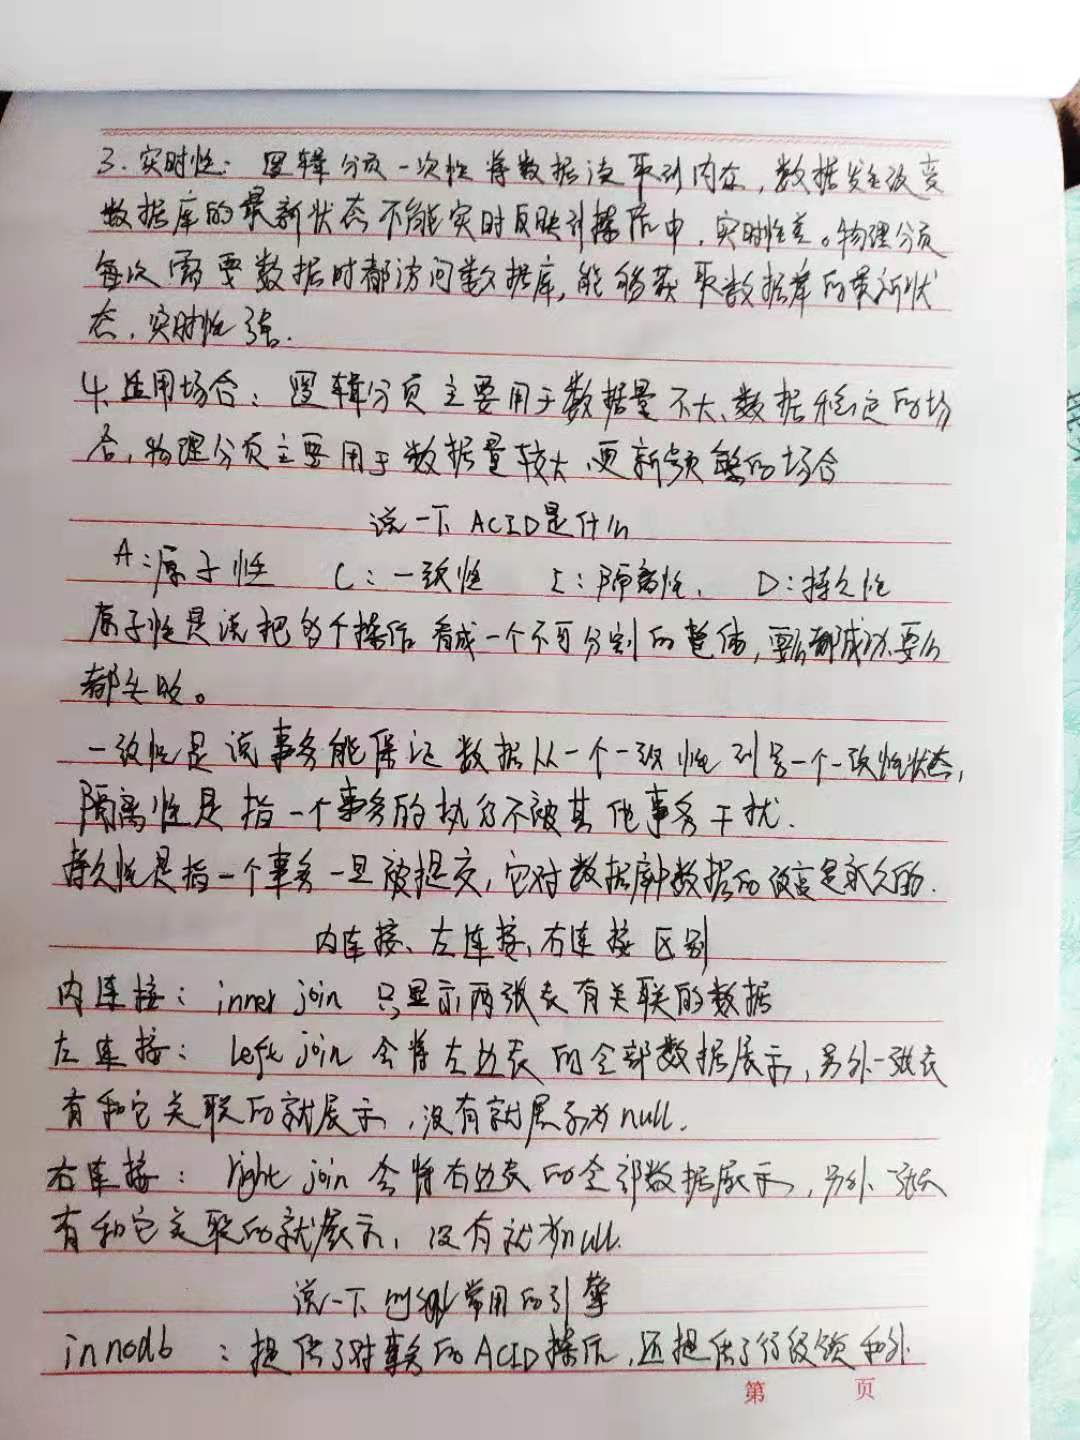 3. 实时性：逻辑分页一次性将数据读取到内存，数据发生改变
数据库的最新状态不能实时反映到操作中，实时性差。物理分页
每次需要数据时都访问数据库，能够获取数据库的最新状
态，实时性强.
4、适用场合：逻辑分页主要用于数据量不大、数据稳定的场
合，物理分页主要用于数据量较大、更新频繁的场合
说一下ACID是什么
A：原子性 C：一致性 I：隔离性、 D：持久性
原子性是说把多个操作看成一个不可分割的整体，要么都成功、要么
都失败。
一致性是说事务能保证数据从一个一致性到另一个一致性状态，
隔离性是指一个事务的执行不被其他事务干扰.
持久性是指一个事务一旦被提交，它对数据库中数据的改变是永久的.
内连接、左连接、右连接区别
内连接：inner join 只显示两张表有关联的数据
左连接：left join 会将左边表的全部数据展示，另外一张表
有和它关联的就展示，没有就展示为null.
右连接：right join 会将右边表的全部数据展示，另外一张表
有和它关联的就展示，没有就为null.
说一下 常用的引擎
innodb ：提供了对事务的ACID操作，还提供了行级锁和外
第 页